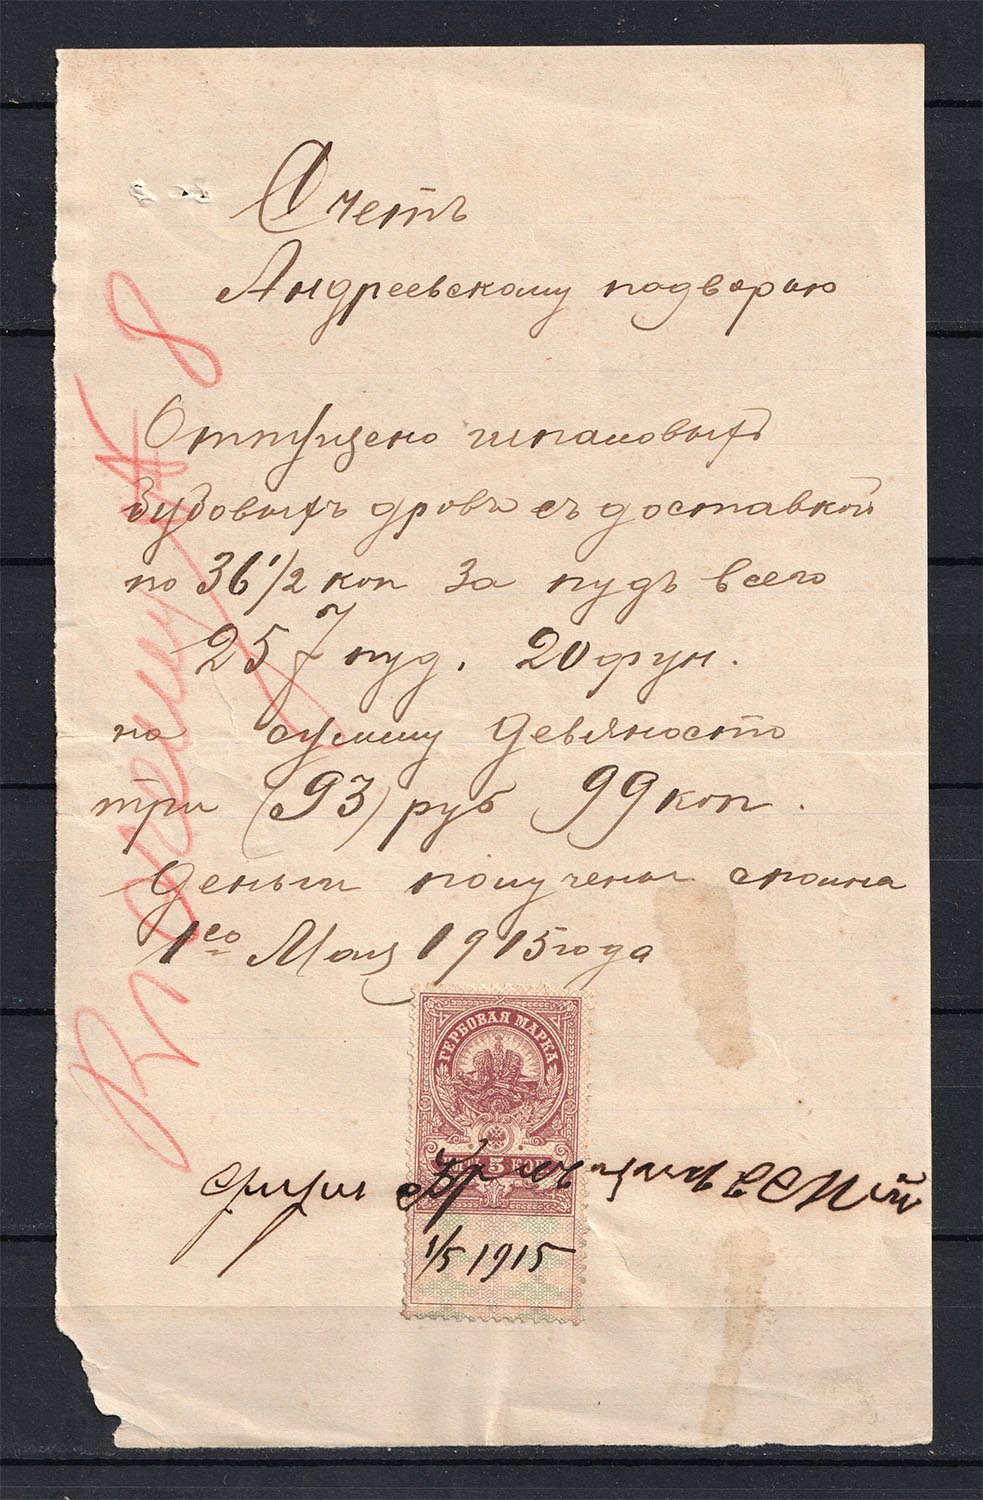 Счетъ
Андреевскому подворью
Отпущено шпаловыхъ
дубовыхъ дровъ съ доставкой
по 36 1/2 коп за пудъ всего
257 пуд. 20 фун.
на сумму девяносто
три (93) руб 99 коп.
Деньги получены сполна
1го Мая 1915 года
ГЕРБОВАЯ МАРКА
5 КОП.
1/5 1915
№ 8